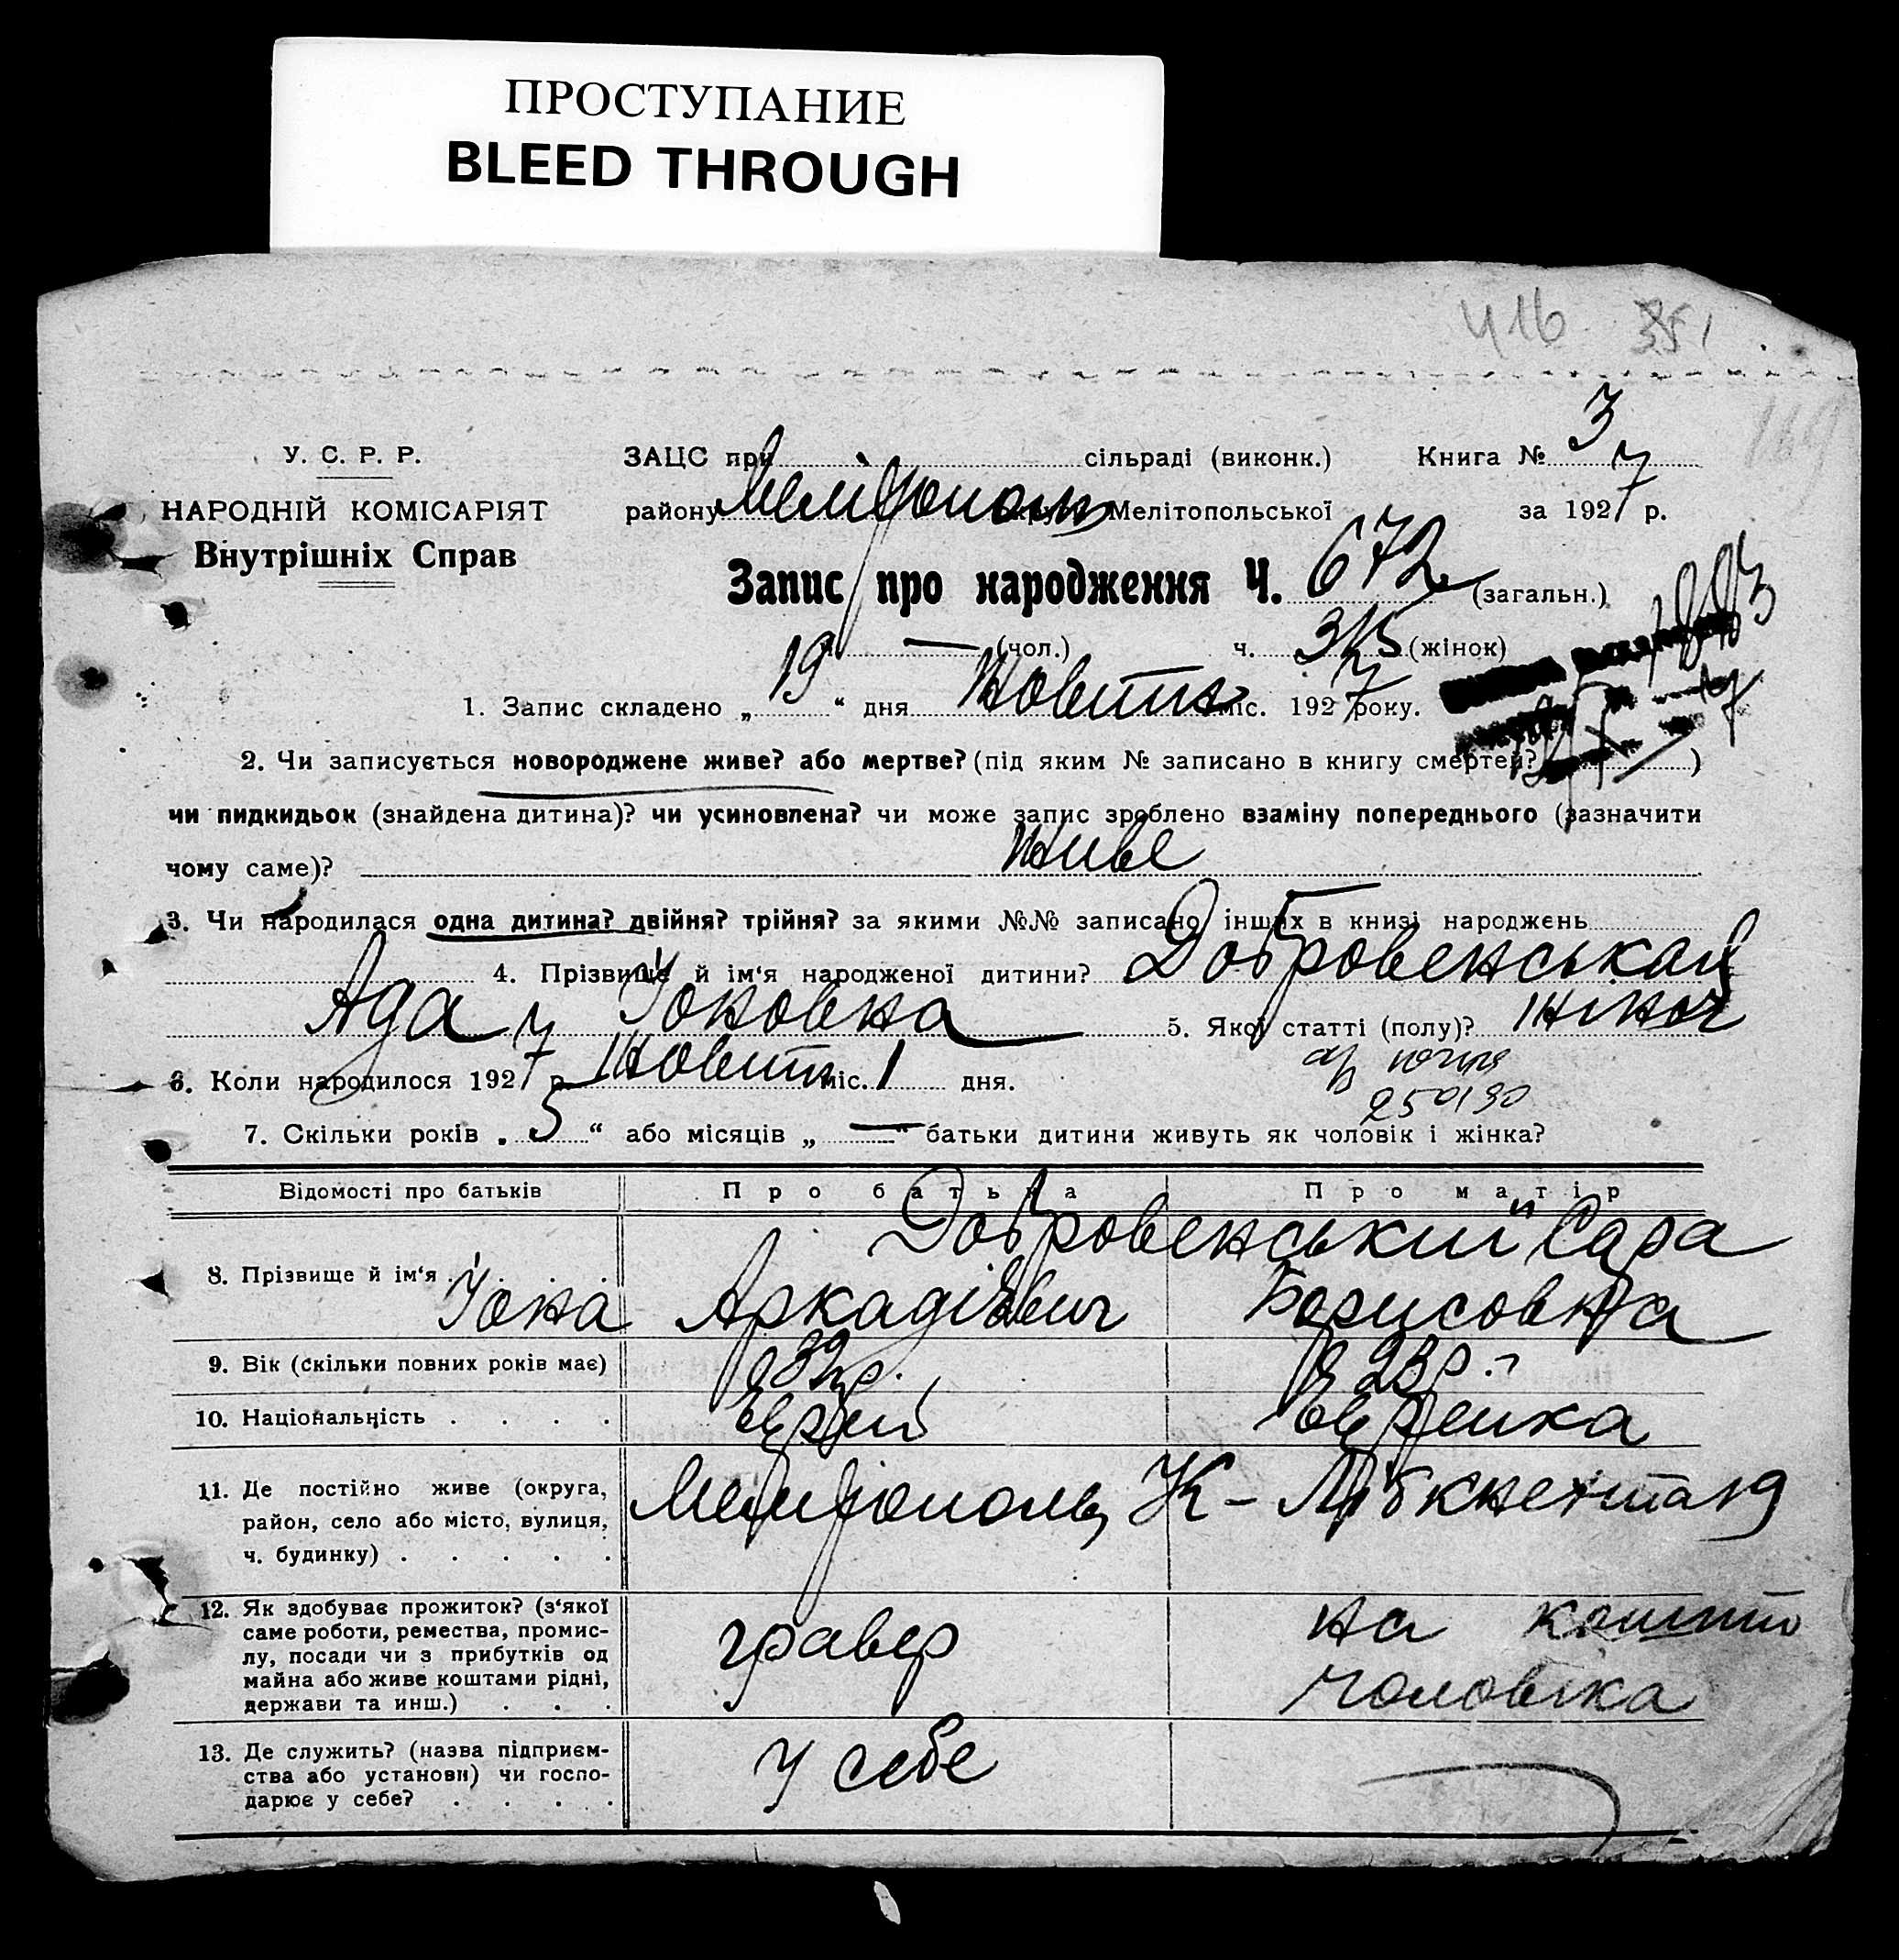 ПРОСТУПАНИЕ
BLEED THROUGH
416 351
169
У. С. Р. Р.
НАРОДНІЙ КОМІСАРІЯТ
Внутрішніх Справ
ЗАЦС при сільраді (виконк.) Книга № 3
району Мелітополь округи Мелітопольської за 1927 р.
Запис про народження Ч. 672 (загальн.)
— (чол.) ч. 315 (жінок)
1. Запис складено „19“ дня Жовтня міс. 1927 року.
2. Чи записується новороджене живе? або мертве? (під яким № записано в книгу смертей? )
чи пидкидьок (знайдена дитина)? чи усиновлена? чи може запис зроблено взаміну попереднього (зазначити
чому саме)? Живе
3. Чи народилася одна дитина? двійня? трійня? за якими №№ записано інших в книзі народжень
4. Прізвище й ім'я народженої дитини? Добровенськая
Ада Іоновна 5. Якої статті (полу)? жіноч
6. Коли народилося 1927 р. Жовтня міс. 1 дня.
250190
7. Скільки років „5“ або місяців „—“ батьки дитини живуть як чоловік і жінка?
Відомості про батьків Про батька Про матір
Добровенський Сара
8. Прізвище й ім'я . . . . Іона Аркадієвич Борисовна
9. Вік (скільки повних років має) 32 р. 23 р.
10. Національність . . . . Еврей Еврейка
11. Де постійно живе (округа,
район, село або місто, вулиця,
ч. будинку) . . . . .
Мелітополь, К-Лібкнехта 19
12. Як здобуває прожиток? (з'якої
саме роботи, ремества, промис-
лу, посади чи з прибутків од
майна або живе коштами рідні,
держави та инш.) . . .
гравер
на кошти
чоловіка
13. Де служить? (назва підприєм-
ства або установи) чи госпо-
дарює у себе? . . . .
У себе